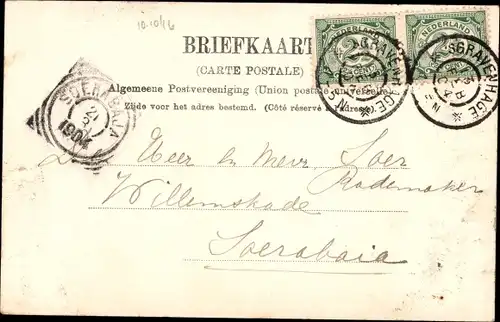 10-10/16
BRIEFKAART
(CARTE POSTALE)
Algemeene Postvereeniging (Union postale universelle)
Zijde voor het adres bestemd. (Côté réservé à l'adresse)
NEDERLAND
NEDERLAND
CENT
'S GRAVENHAGE
'S GRAVENHAGE
SOERABAJA
1904
Heer en Mevr Soer
Rademaker
Willemskade
Soerabaia